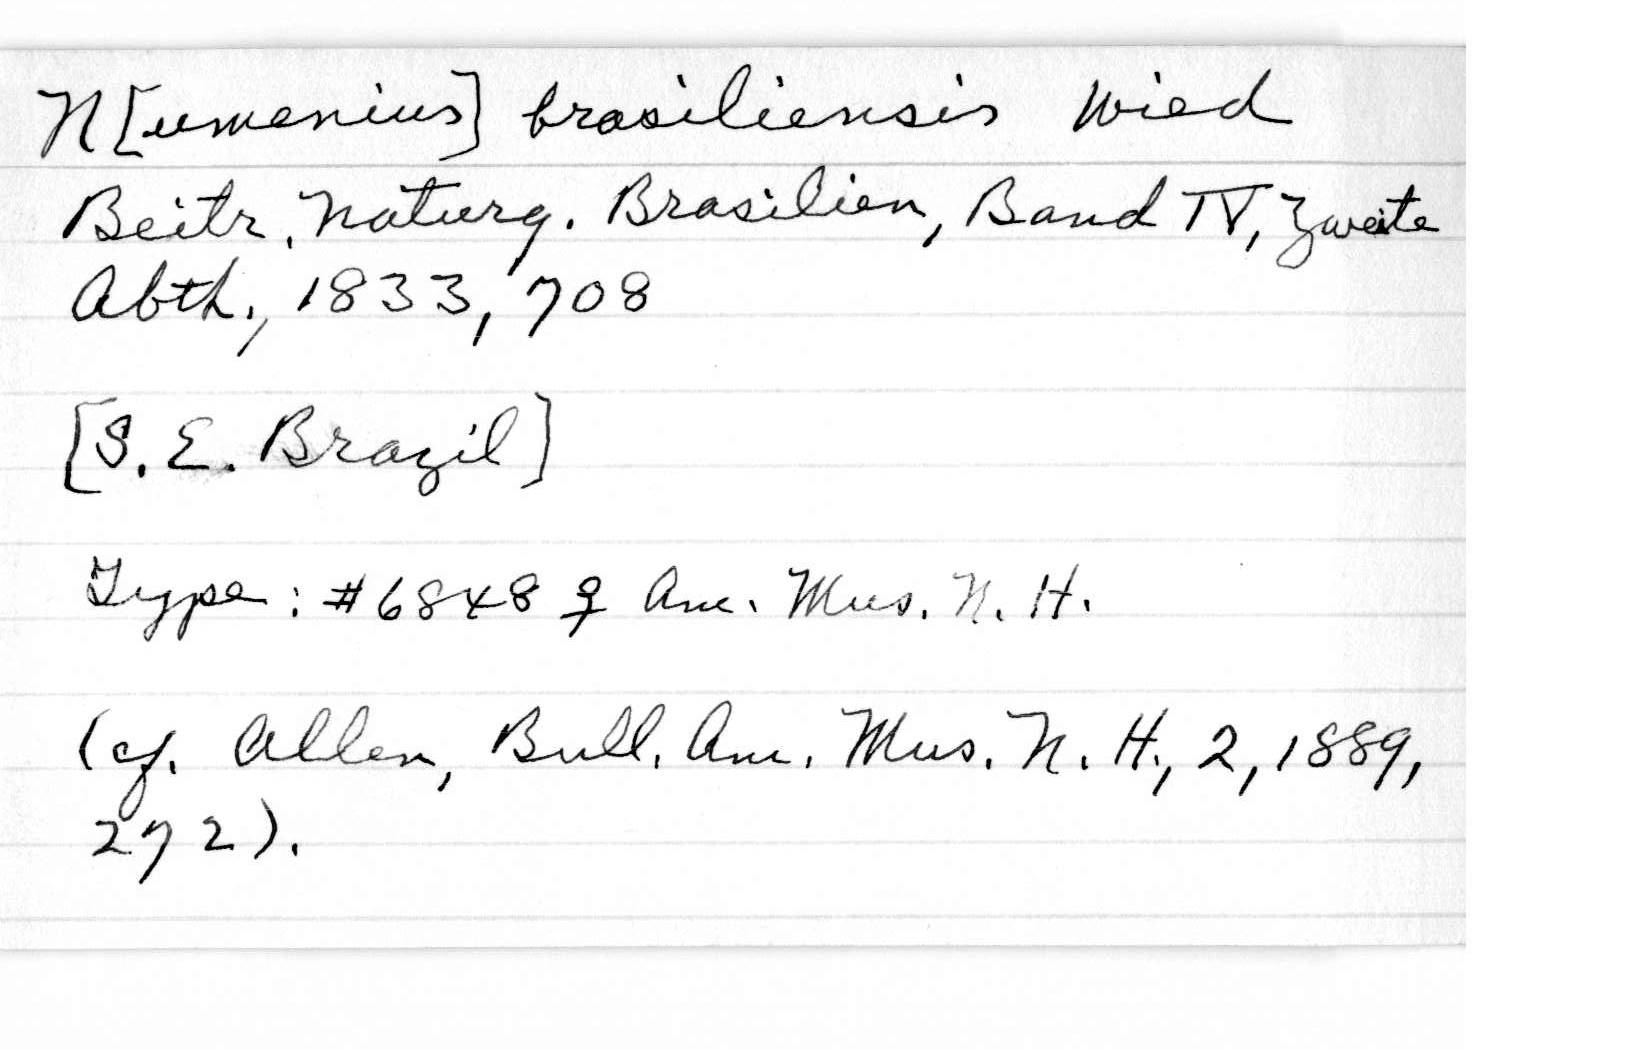 N[umenius] brasiliensis Wied
Beitr. Naturg. Brasilien, Band IV, Zweite
Abth., 1833, 708
[S. E. Brazil]
Type: #6848 ♀ Am. Mus. N. H.
(cf. Allen, Bull. Am. Mus. N. H., 2, 1889,
272).